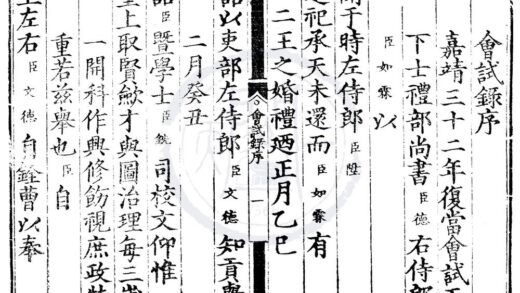 會試錄序
嘉靖三十二年復當會試天
下士禮部尚書臣德右侍郎
臣如霖以
于時左侍郎臣陞
祀承天未還而臣如霖有
二王之婚禮廼正月乙巳
會試錄序 一
以吏部左侍郎臣文德知貢舉
二月癸丑
臣暨學士臣 司校文仰惟
上取賢斂才與圖治理每三歲
一開科作興修飭視庶政
重若兹舉也臣自
左右臣文德自銓曹以奉